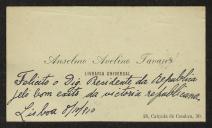 Anselmo Avelino Tavares
LIVRARIA UNIVERSAL
Felicito o Dig. Presidente da Republica
pelo bom exito da victoria republicana,
Lisboa 8/10/910
28, Calçada do Combro, 30